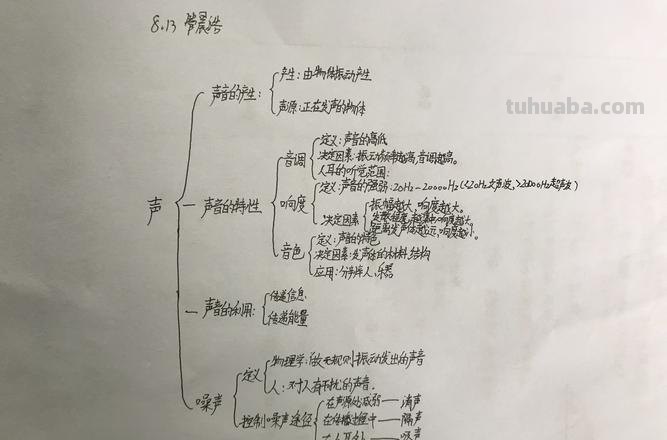 8.13
tuhuaba.com
声
声音的产生：
产生：由物体振动产生
声源：正在发声的物体
一 声音的特性
音调
定义：声音的高低
决定因素：振动频率越高，音调越高。
人耳的听觉范围：
响度
定义：声音的强弱：20Hz－20000Hz（<20Hz次声波，>20000Hz超声波）
决定因素
振幅越大，响度越大。
距离发声体越远，响度越小。
音色
定义：声音的特色
决定因素：发声体的材料、结构
应用：分辨人、乐器
一 声音的利用：
传递信息
传递能量
噪声
定义
物理学：做无规则振动发出的声音
人：对人有干扰的声音．
控制噪声途径
在声源处减弱——消声
在传播过程中——隔声
在人耳处——吸声